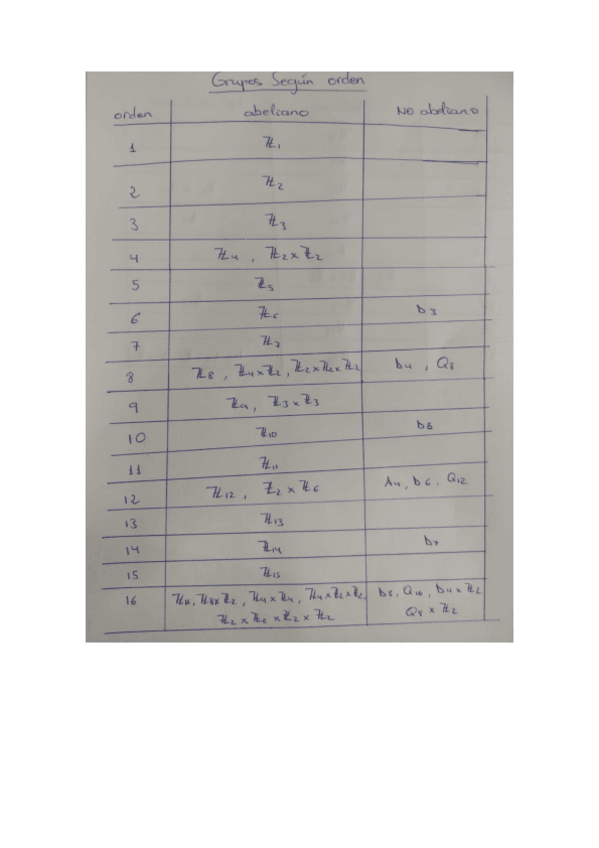 Grupos Según orden
orden abeliano No abeliano
1 ℤ₁
2 ℤ₂
3 ℤ₃
4 ℤ₄ , ℤ₂×ℤ₂
5 ℤ₅
6 ℤ₆ D₃
7 ℤ₇
8 ℤ₈ , ℤ₄×ℤ₂ , ℤ₂×ℤ₂×ℤ₂ D₄ , Q₈
9 ℤ₉ , ℤ₃×ℤ₃
10 ℤ₁₀ D₅
11 ℤ₁₁
12 ℤ₁₂ , ℤ₂×ℤ₆ A₄ , D₆ , Q₁₂
13 ℤ₁₃
14 ℤ₁₄ D₇
15 ℤ₁₅
16 ℤ₁₆, ℤ₈×ℤ₂ , ℤ₄×ℤ₄ , ℤ₄×ℤ₂×ℤ₂, D₈, Q₁₆, D₄×ℤ₂
ℤ₂×ℤ₂×ℤ₂×ℤ₂ Q₈×ℤ₂